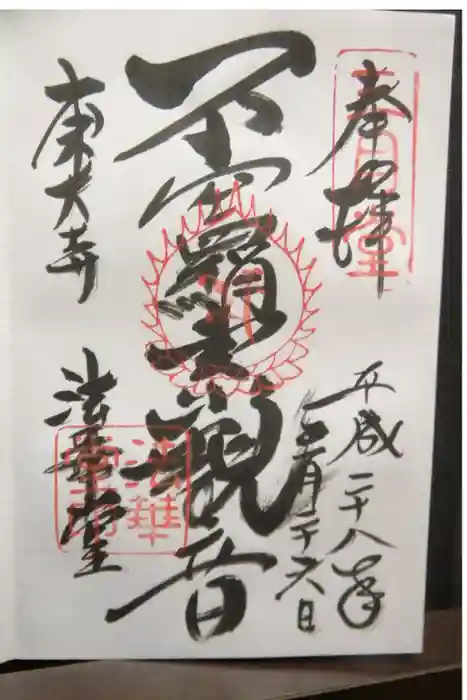 奉拝
平成二十八年
月二十六日
不空羂索観音
東大寺
法華堂